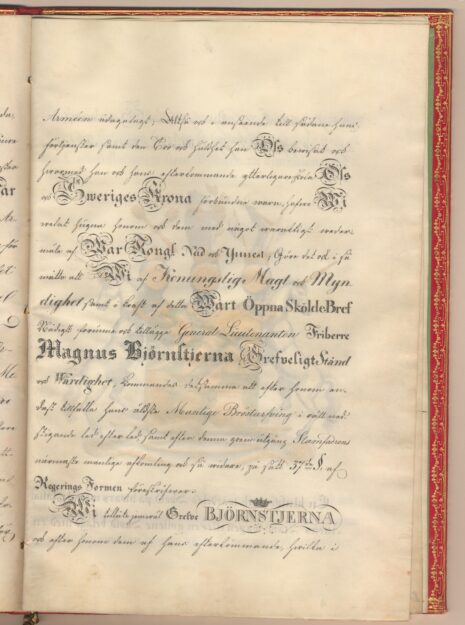 Arméen ådagalagt; Altså och i anseende till sådane hans
förtjenster samt den Tro och huldhet han Oss bewisat och
hwarmed han och hans efterkommande ytterligare skola Oss
och Sweriges Krona förbundne wara, hafwe Wi
welat hugna honom och dem med något
måle af Wår Kongl. Nåd och Ynnest; Göre det ock i så
måtto att Wi af Konungslig Magt och Myn
dighet samt i kraft af detta Wårt Öppna Sköldebref
Nådigst förunne och tillägge General Lieutenanten Friherre
Magnus Björnstjerna Grefveligt Stånd
och Wärdighet, kommandes detsamma att efter honom en-
dast tillfalla hans äldste Manlige Bröstarfving i rätt ned
stigande led efter led, samt efter denna grens utgång Stamfadrens
närmaste manlige afkomling och så widare, på sätt 37de § af
Regerings Formen föreskrifwer.
Wi tillåte jemwäl Grefve BJÖRNSTJERNA
och efter honom dem af hans efterkommande, hwilka i